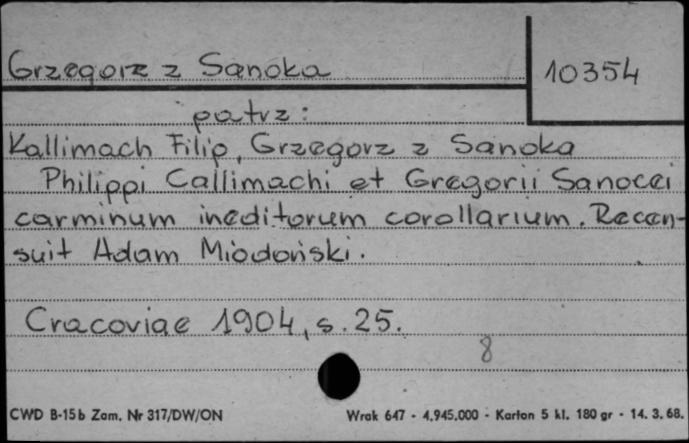 Grzegorz z Sanoka
10354
patrz:
Kallimach Filip, Grzegorz z Sanoka
Philippi Callimachi et Gregorii Sanocei
carminum ineditorum corollarium. Recen-
suit Adam Miodoński.
Cracoviae 1904, s. 25.
8
CWD B-15b Zam. Nr 317/DW/ON
Wrak 647 - 4.945.000 - Karton 5 kl. 180 gr - 14. 3. 68.